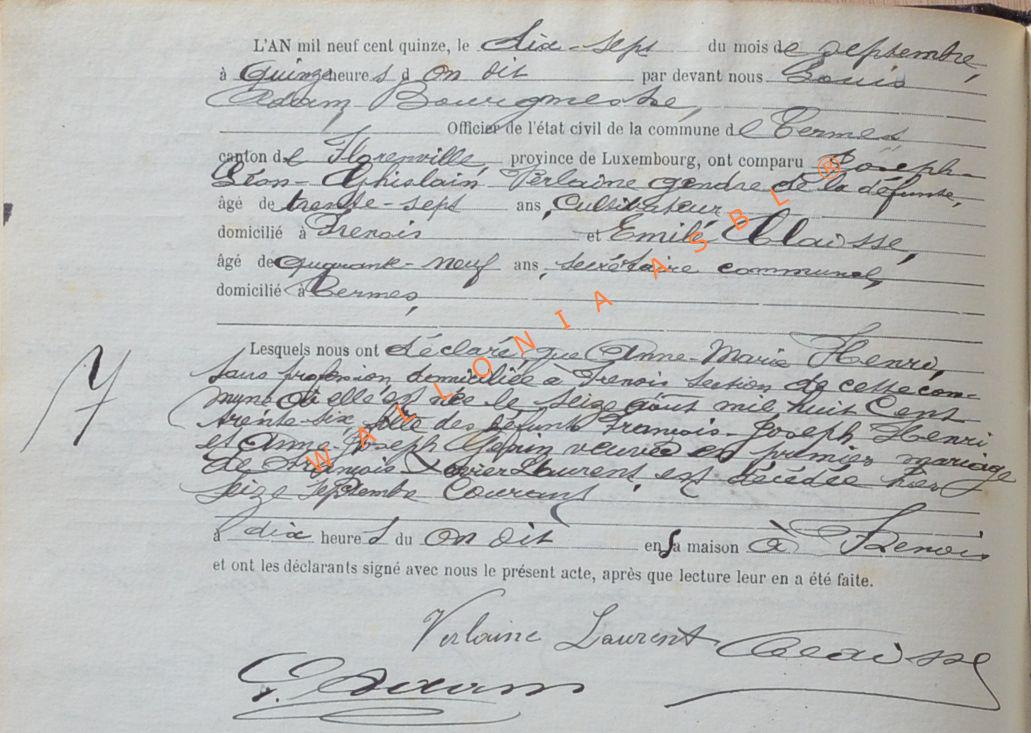 L'AN mil neuf cent quinze, le dix-sept du mois de septembre,
à quinze heures d on dit par devant nous Louis
Adam, Bourgmestre,
Officier de l'état civil de la commune de Termes
canton de Florenville, province de Luxembourg, ont comparu Joseph-
Léon-Ghislain Verlaine gendre de la défunte,
âgé de trente-sept ans, cultivateur
domicilié à Frenois et Emile Claisse,
âgé de quarante-neuf ans, secrétaire communal,
domicilié à Termes,
Lesquels nous ont déclaré, que Anne-Marie Henri,
sans profession domiciliée à Frenois section de cette com-
mune où elle est née le seize août mil huit cent
trente-six, fille des défunts François-Joseph Henri
et Anne-Joseph veuve en premier mariage
de François-Xavier Laurent, est décédée hier
seize septembre courant
à dix heures du on dit en sa maison à Frenois
et ont les déclarants signé avec nous le présent acte, après que lecture leur en a été faite.
Verlaine Laurent Claisse
L. Adam
7
WALLONIA ASBL ®